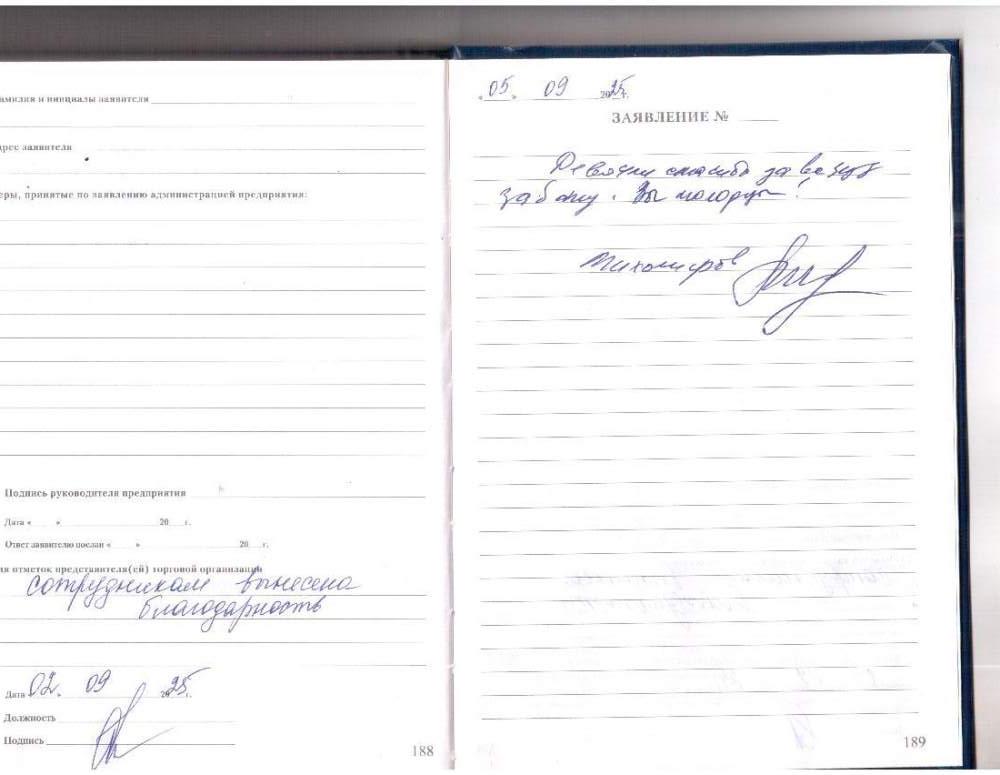 амилия и инициалы заявителя
дрес заявителя
еры, принятые по заявлению администрацией предприятия:
Подпись руководителя предприятия
Дата « » 20 г.
Ответ заявителю послан « » 20 г.
ля отметок представителя(ей) торговой организации
сотрудникам вынесена
благодарность
Дата 02. 09 2025 г.
Должность
Подпись
188
«05» 09 2025 г.
ЗАЯВЛЕНИЕ №
Девочки спасибо за вашу
заботу. Вы молодцы!
Тихомиров
189